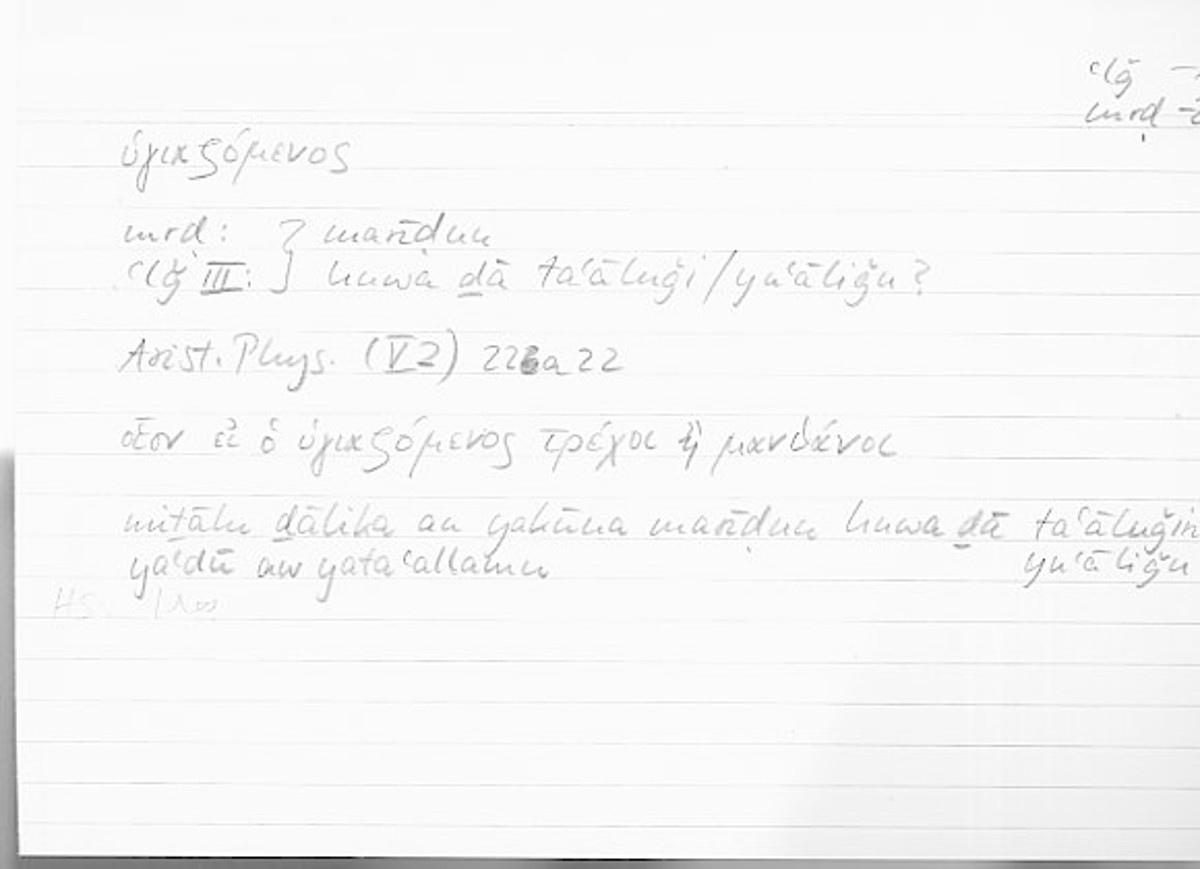 ʿlǧ
mrḍ
ὑγιαζόμενος
mrḍ: } marīḍun
ʿlǧ III: } huwa ḏā taʿāluǧi / yuʿāliǧu?
Arist. Phys. (V 2) 226a 22
οἷον εἰ ὁ ὑγιαζόμενος τρέχοι ἢ μανθάνοι
miṯālu ḏālika an yakūna marīḍun huwa ḏā taʿāluǧin
yaʿdū aw yataʿallamu yuʿāliǧu